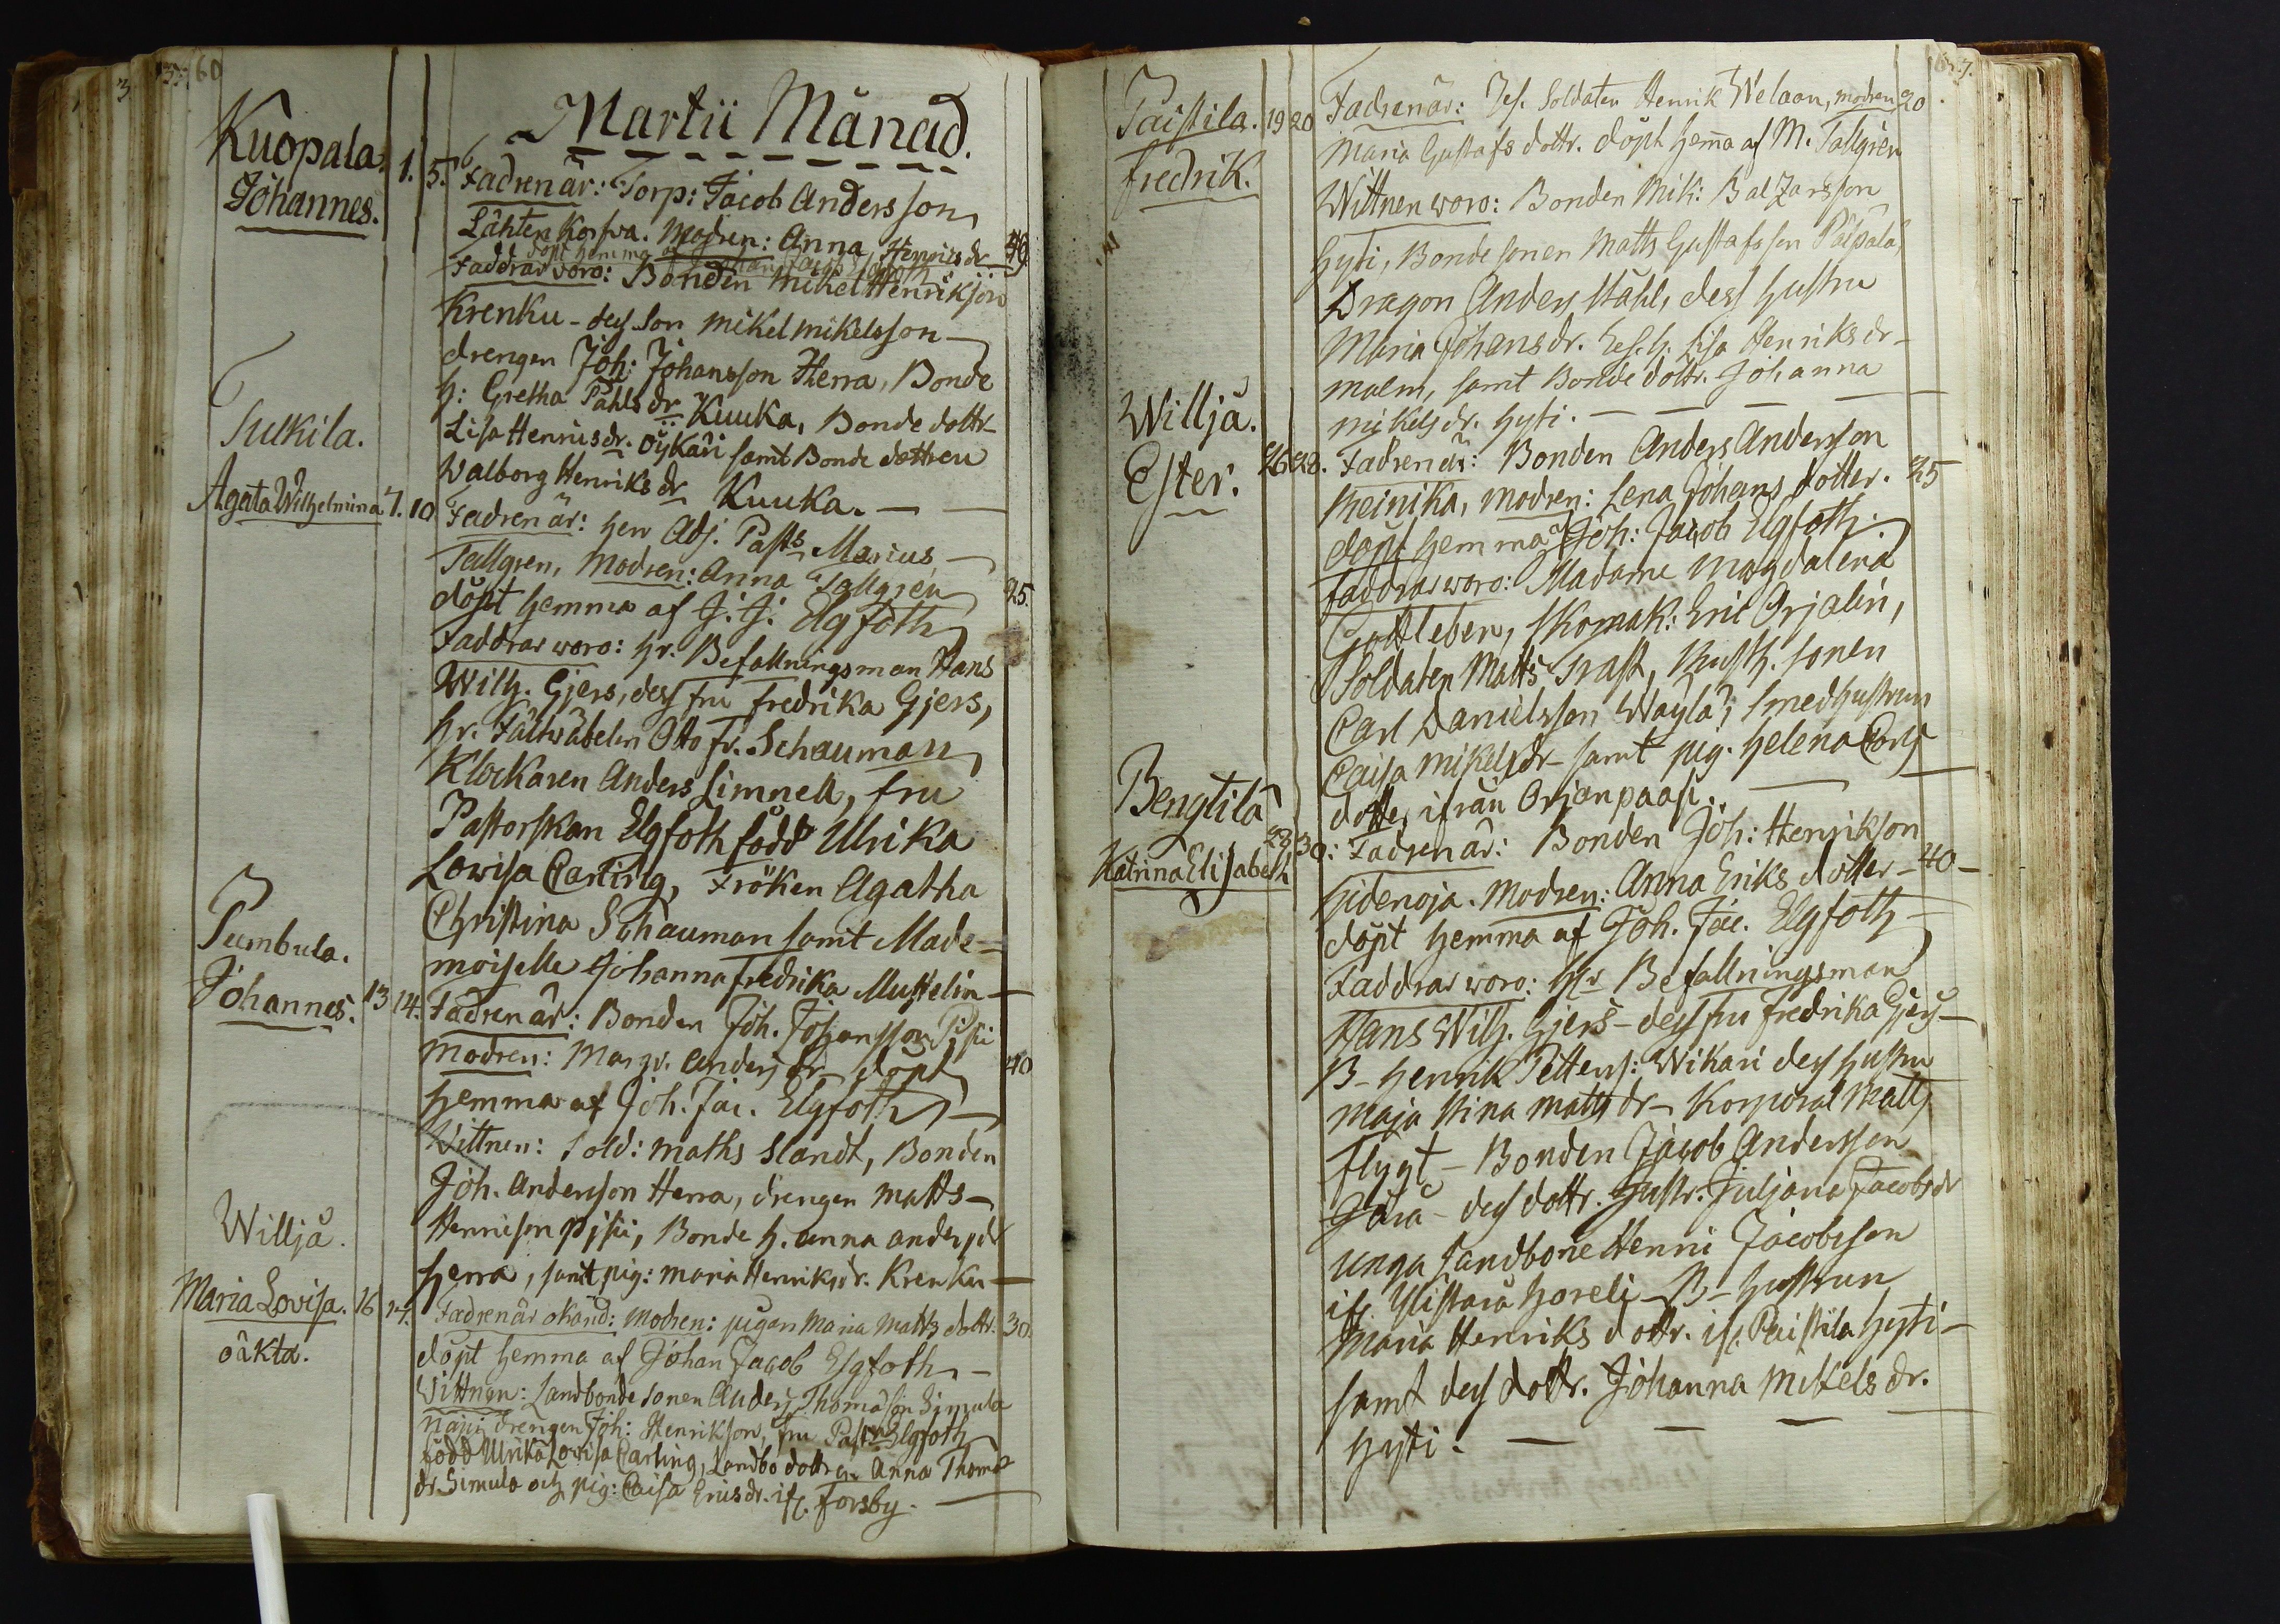 60
Martii Månad.
Kuopala.
Johannes.
1. 5. Fadren är: Torp: Jacob Andersson
Lähten Korfva. Modren: Anna Henricsdr 40
döpt hemma af Johan Jacob Elgfoth
Faddrar voro: Bonden Mikel Henrikson
Krenku - dess Son Mikel Mikelsson
drengen Joh: Johansson Herra, Bonde
h: Gretha Påhls dr Kuuka, Bonde dottr
Lisa Henricsdr. Öykäri samt Bonde dottren
Walborg Henriks dr Kuuka.
Sulkila.
Agata Wilhelmina
7. 10 Fadren är: herr Adj. Past. Marius
Tallgren, Modren: Anna Tallgren 25.
döpt hemma af J. J. Elgfoth
Faddrar woro: hr. Befallningsman Hans
Wilh. Gjers, dess fru Fredrika Gjers,
hr. Fältväbelen Otto Fr. Schauman
Klockaren Anders Limnell, fru
Pastorskan Elgfoth född Ulrika
Lowisa Carling, Fröken Agatha
Christina Schauman samt Made-
moiselle Johanna Fredrika Mustelin
Pumbula.
Johannes.
13 14. Fadren är: Bonden Joh. Johansson
Modren: Margr. Anders dr döpt 40
hemma af Joh. Jac. Elgfoth
Vittnen: Sold: Maths Slandt, Bonden
Joh. Andersson Herra, drengen Matts
Henricson, Bonde h. Anna Andersdr
Herra, samt pig: Maria Henriksdr. Krenku
Willjä.
Maria Lovisa.
oäkta.
16 17. Fadren är okänd: Modren: pigan Maria Matts dottr. 30.
döpt hemma af Johan Jacob Elgfoth
Vittnen: Landbonde sonen Anders Thomasson Simula
drengen Joh: Henrikson, fru Past. Elgfoth
född Ulrika Lovisa Carling, Landbo dottren Anna Thomas
dr. Simula och pig: Caisa Ericsdr. ifr. Forsby.
Paistila.
Fredrik.
19 20 Fadren är: Soldaten Henrik Welaon, modren 20
Maria Gustafs dottr. döpt hemma af M. Tallgren
Wittnen woro: Bonden Mik: Balzarsson
Hyti, Bonde sonen Matts Gustafsson Paipala,
Dragon Anders Ståhl, dess hustru
Maria Johansdr. Lisa Henriksdr
Malm, samt Bonde dottr. Johanna
Mikelsdr. Hyti.
Willjä.
Ester.
26 28. Fadren är: Bonden Anders Andersson
Reinika, Modren: Lena Johans dotter. 25
döpt hemma Joh: Jacob Elgfoth.
Faddrar woro: Madame Magdalena
Gottleben, Skomak: Eric Orjalin,
Soldaten Matts Frask, Rusth. sonen
Carl Danielsson Wäylä, Smedhustrun
Caisa Mikelsdr samt pig. Helena Carls
dotter ifrån Orjanpaasi.
Bengtila
Katrina Elisabeth
28 30: Fadren är: Bonden Joh: Henrikson
Hidenoja. Modren: Anna Eriks dotter - 40
döpt hemma af Joh. Jac. Elgfoth
Faddrar woro: Hr Befallningsman
Hans Wilh. Gjers - dess fru Fredrika Gjers
B- Henrik Petterss: Wikari dess hustru
Maja Stina Matts dr - Korporal Matts
Flygt - Bonden Jacob Andersson
Jära - dess dottr. Gustr. Juliana Jacobsdr
unga Landbone Henric Jacobsson
ifr. Ylistarå Horeli - B- hustrun
Maria Henriks dottr. ifr. Paistila Hyti
samt dess dottr. Johanna Mikels dr.
Hyti.